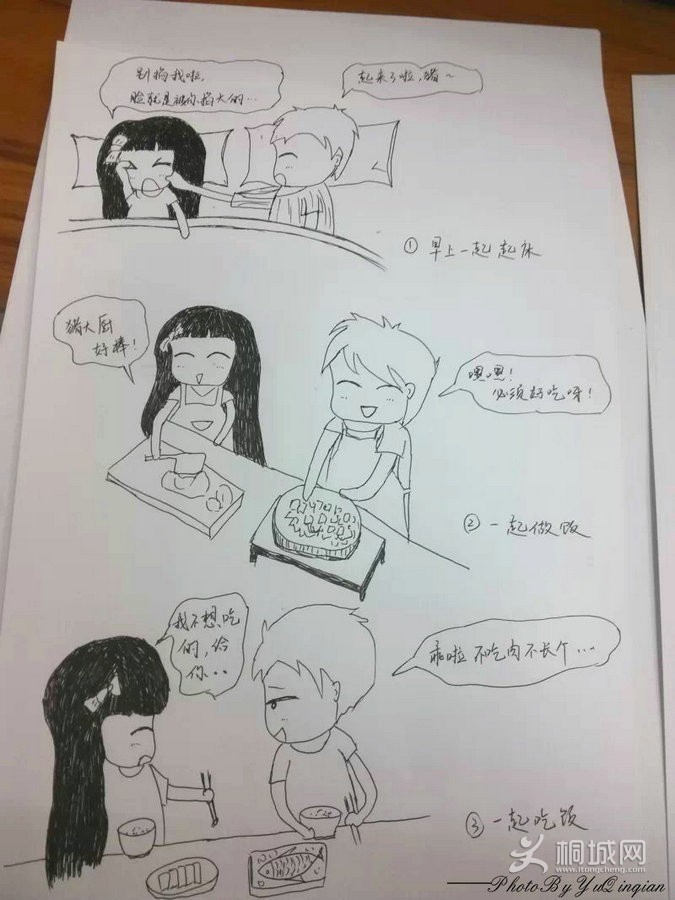 别掐我啦,
脸就是被你掐大的…
起来了啦,猪~
①早上一起起床
猪大厨
好棒!
嘿嘿!
必须好吃呀!
②一起做饭
我不想吃
的,给
你..
乖啦 不吃肉不长个…
③一起吃饭
桐城网
www.itongcheng.com
——PhotoBy YuQingian